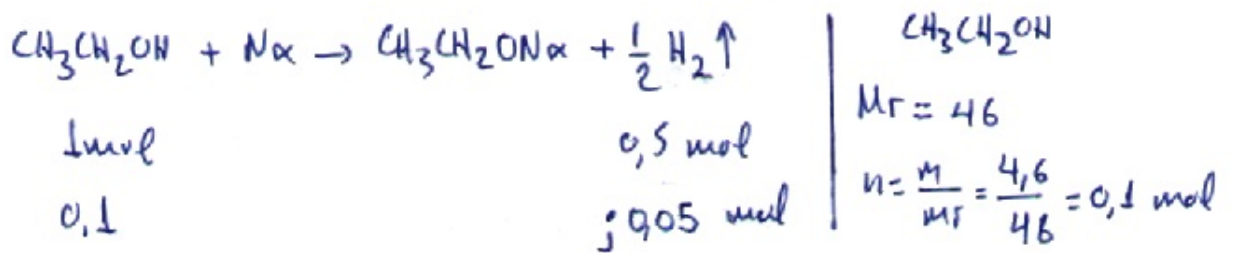 CH₃CH₂OH + Nα → CH₃CH₂ONα + 1/2 H₂↑
1mol 0,5 mol
0,1 ; 0,05 mol
CH₃CH₂OH
Mr = 46
n = m/mr = 4,6/46 = 0,1 mol